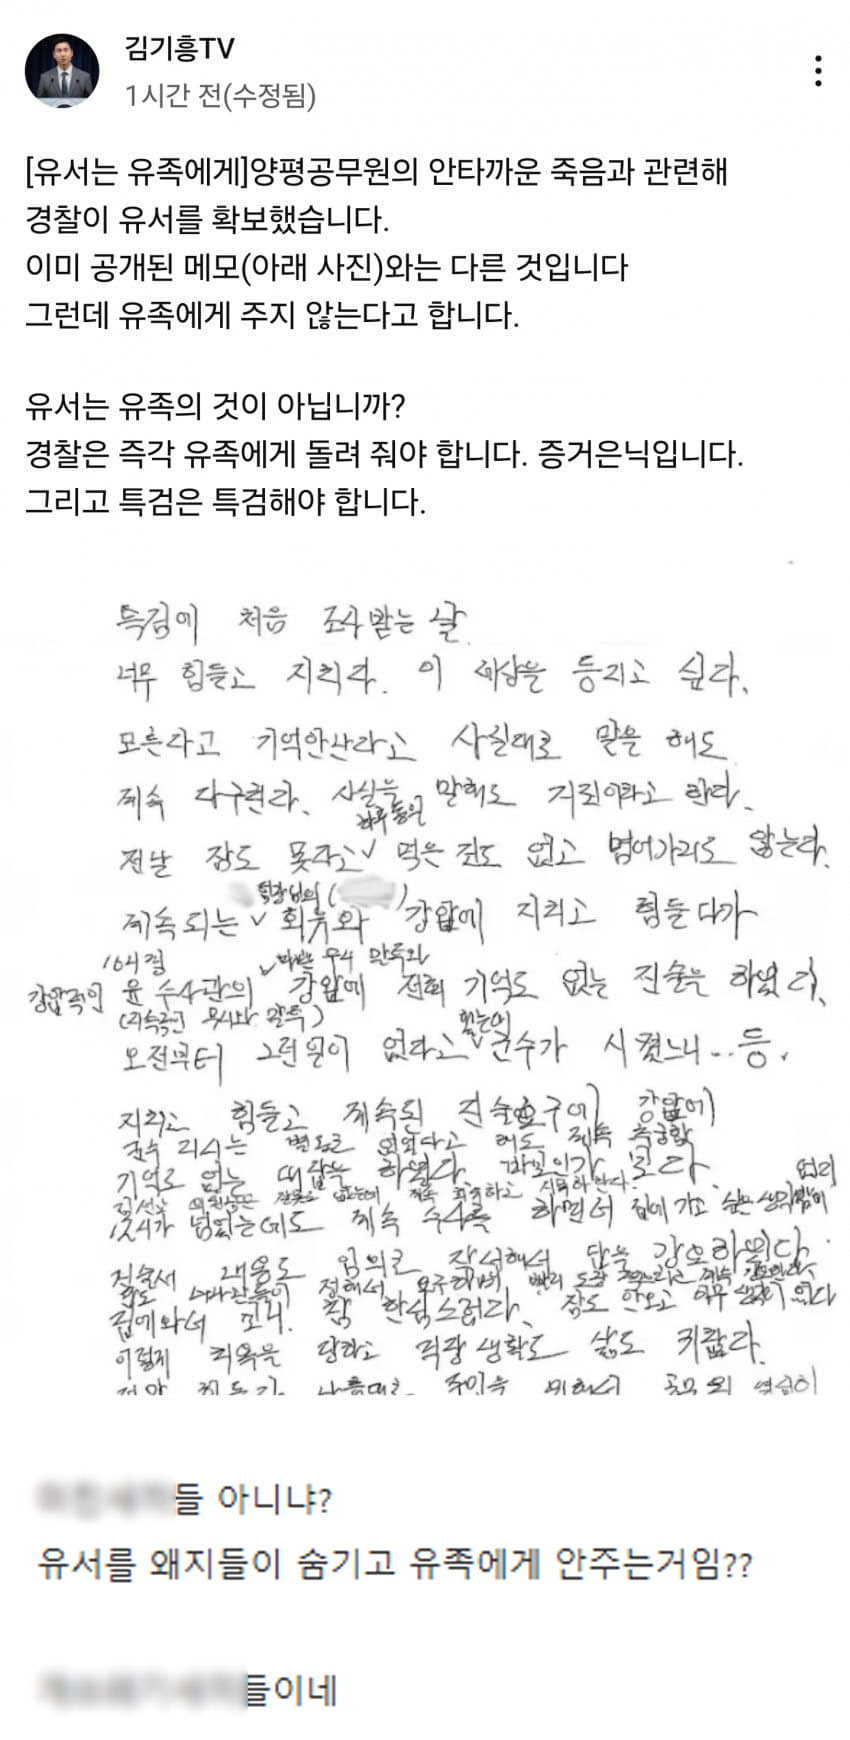 김기흥TV
1시간 전(수정됨)
[유서는 유족에게]양평공무원의 안타까운 죽음과 관련해
경찰이 유서를 확보했습니다.
이미 공개된 메모(아래 사진)와는 다른 것입니다
그런데 유족에게 주지 않는다고 합니다.
유서는 유족의 것이 아닙니까?
경찰은 즉각 유족에게 돌려 줘야 합니다. 증거은닉입니다.
그리고 특검은 특검해야 합니다.
특검에 처음 조사받는 날
너무 힘들고 지치다. 이 세상을 등지고 싶다.
모른다고 기억안난다고 사실대로 말을 해도
계속 다그친다. 사실을 말해도 거짓이라고 한다.
하루종일
전날 잠도 못자고 ∨ 먹은 것도 없고 넘어가지도 않는다.
팀장님의 ( )
계속되는 ∨ 회유와 강압에 지치고 힘들다가
16시경 ∨ 무시 말투와
강압적인 윤 수사관의 강압에 전혀 기억도 없는 진술을 하였다.
(지속적인 무시와 말투)
오전부터 그런일이 없다고 ∨ 군수가 시켰느니...등.
지치고 힘들고 계속된 진술요구에 강압에
군수 지시는 별도로 없었다고 해도 계속 추궁함
기억도 없는 대답을 하였다. 바보인가 보다.
12시가 넘었는데도 계속 수사를 하면서 집에 가고 싶은 생각밖에
진술서 내용도 임의로 작성해서 답을 강요하였다.
집에와서 보니. 참 한심스럽다. 잠도 안오고 아무 생각이 없다
이렇게 치욕을 당하고 직장생활도 삶도 귀찮다.
들 아니냐?
유서를 왜지들이 숨기고 유족에게 안주는거임??
들이네